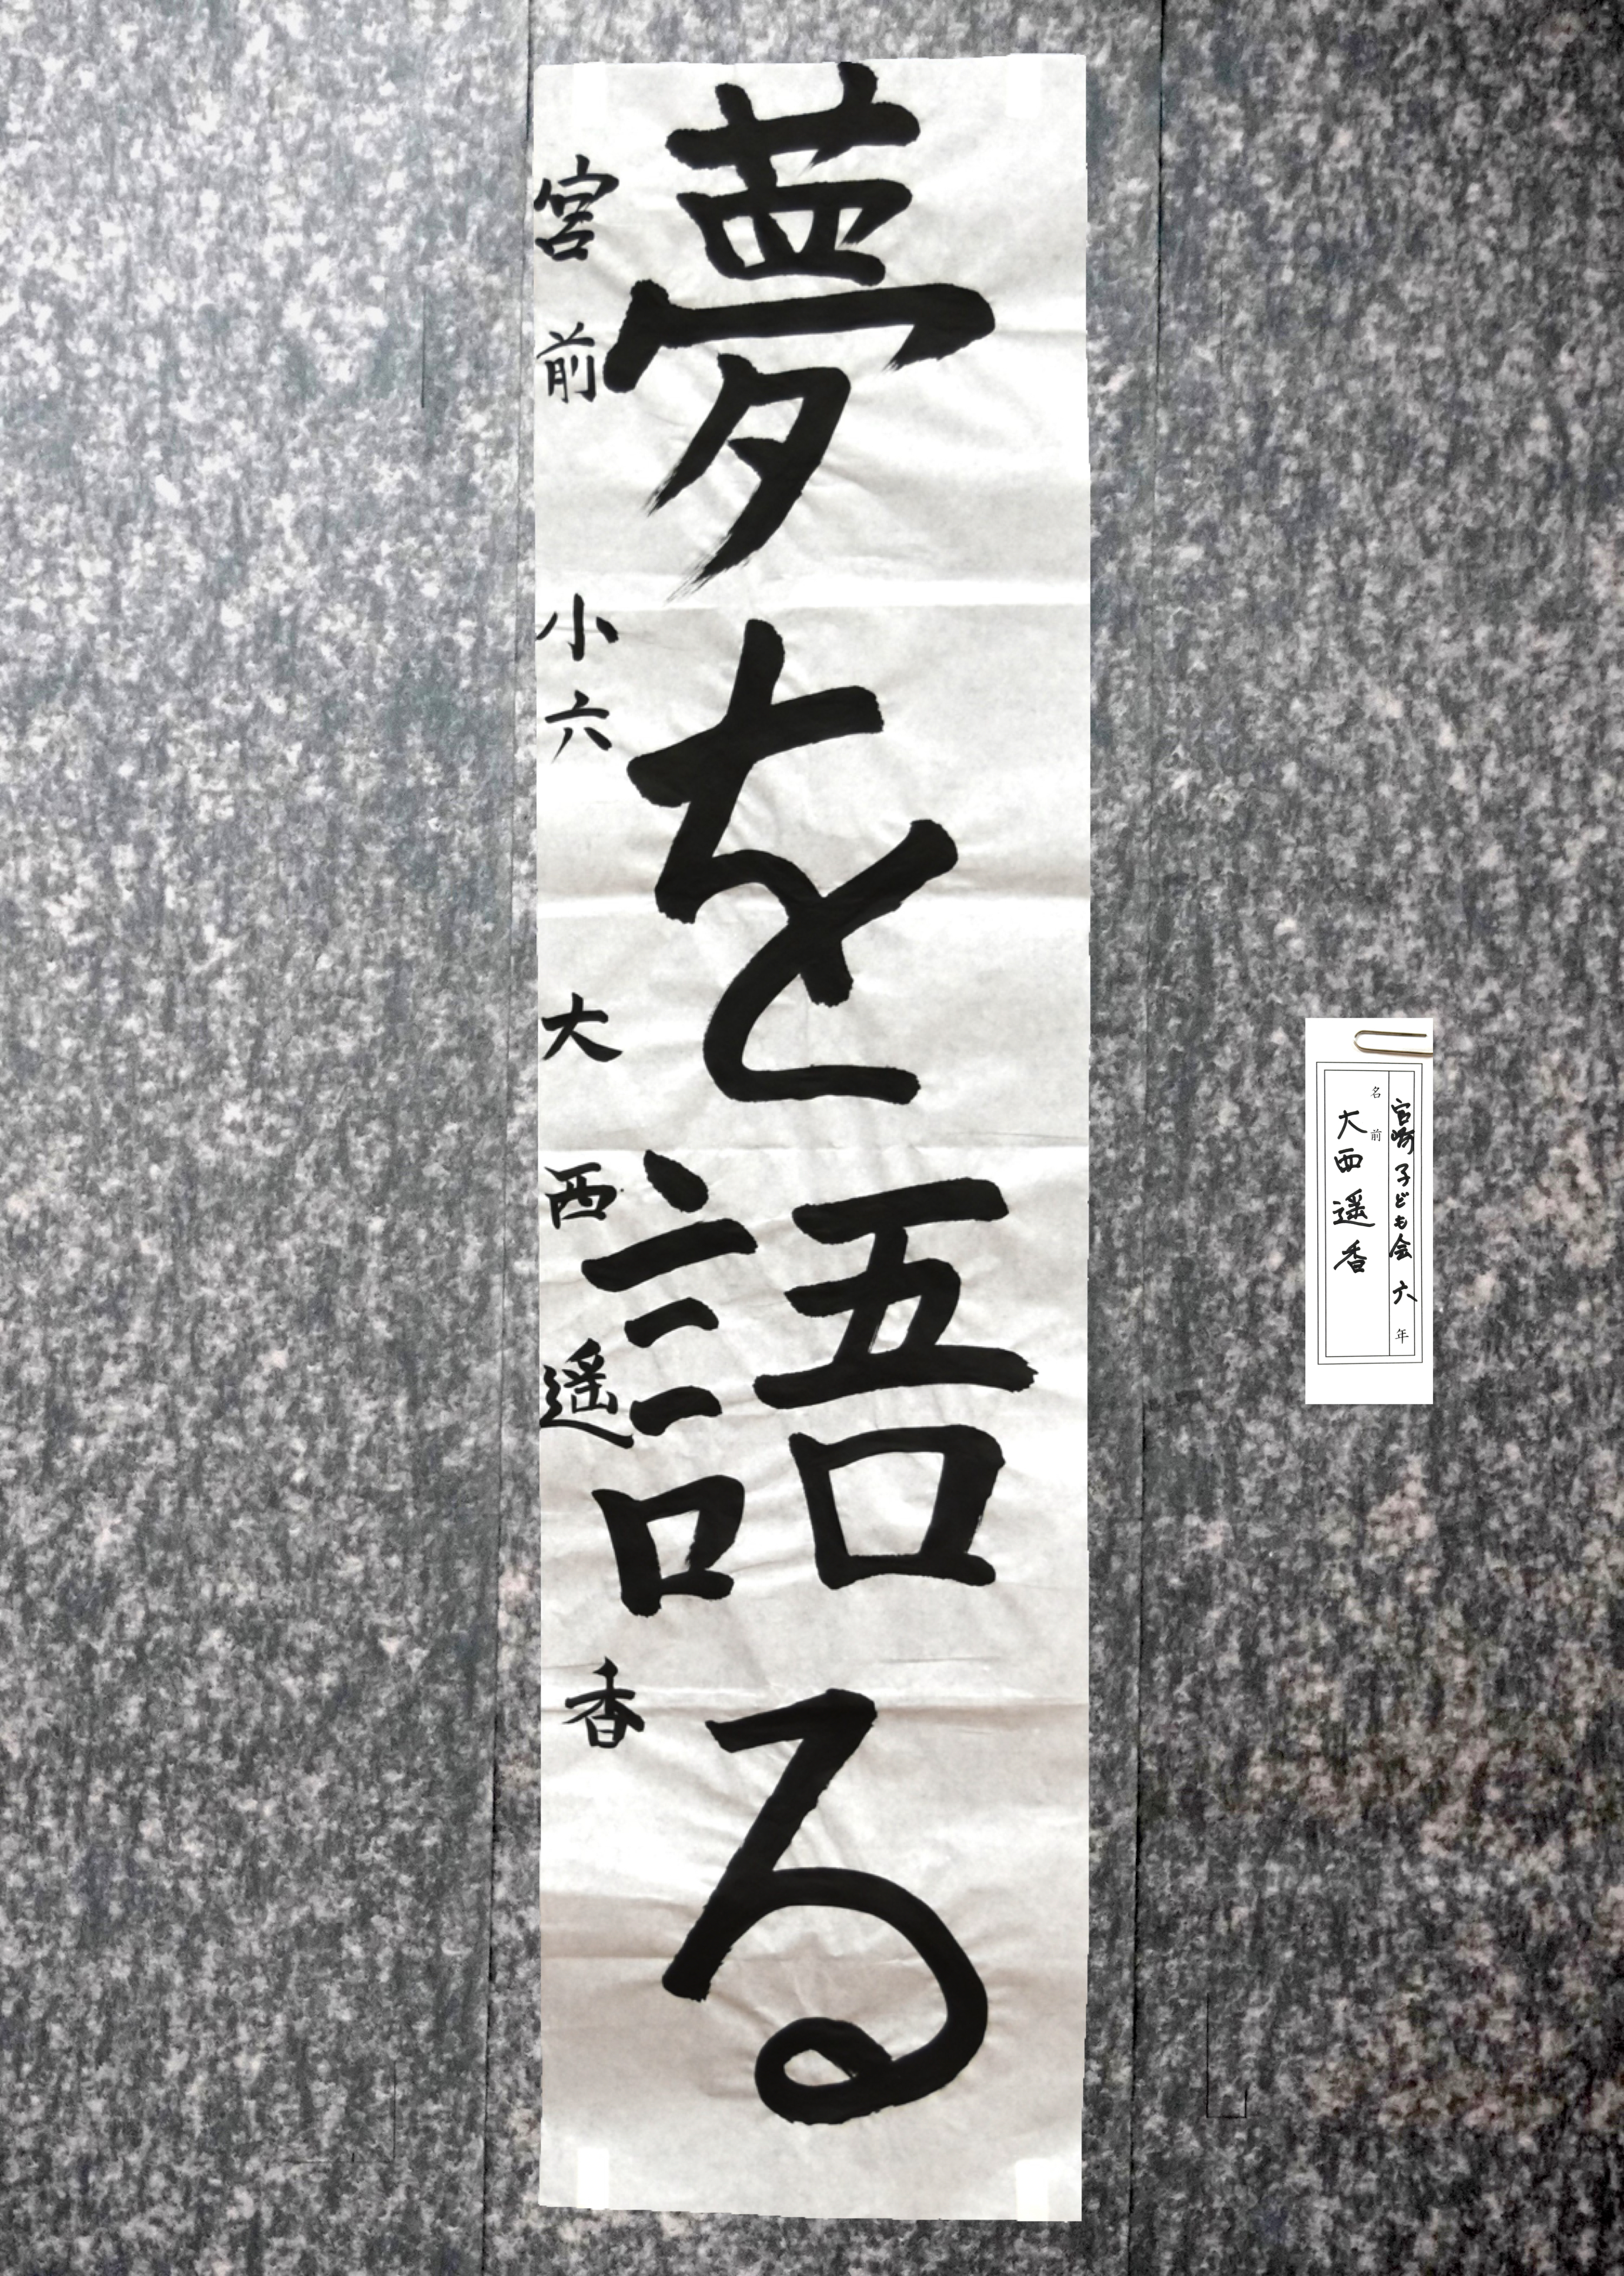 夢を語る
宮前小六 大西遥香
宮崎子ども会 六年
名前
大西遥香